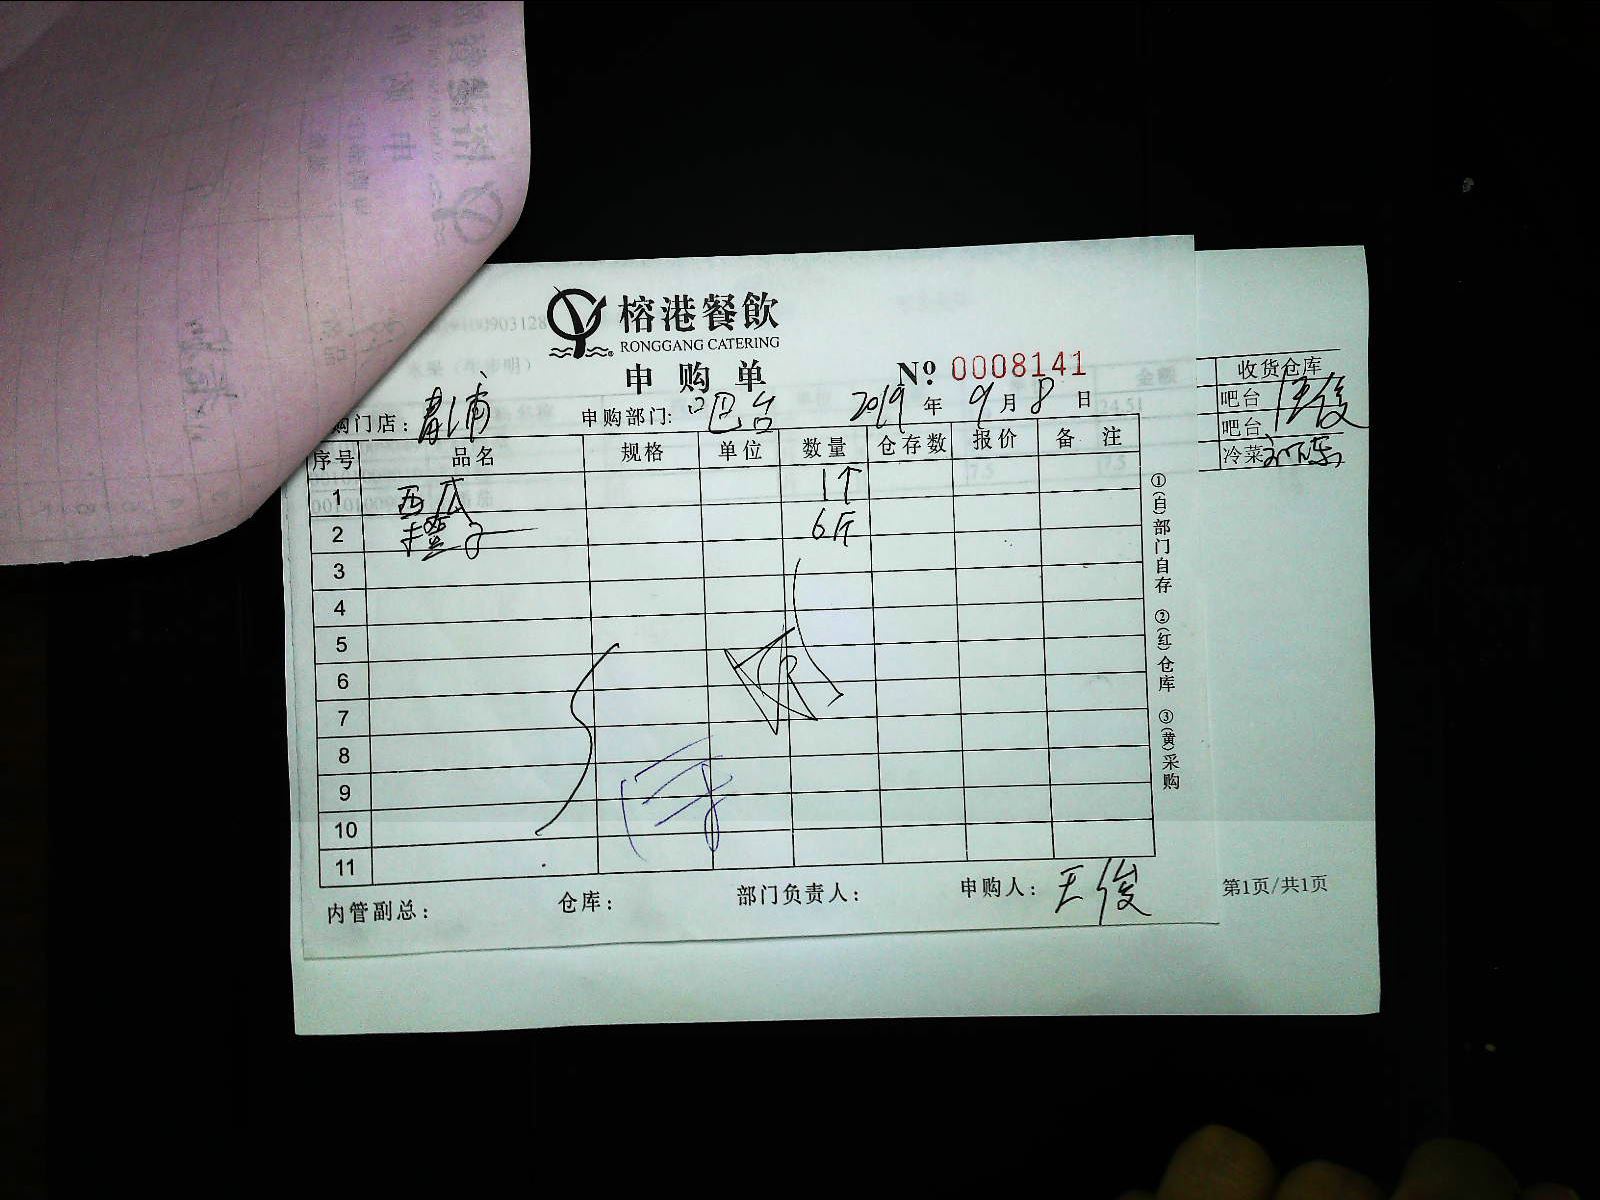 榕港餐飲
RONGGANG CATERING
申购单
№ 0008141
购门店: 青浦 申购部门: 吧台 2019年9月8日
序号 品名 规格 单位 数量 仓存数 报价 备注
1 西瓜 1个
2 橙子 6斤
3
4
5
6
7
8
9
10
11
内管副总: 仓库: 部门负责人: 申购人: 王俊
①(白)部门自存 ②(红)仓库 ③(黄)采购
收货仓库
吧台 王俊
吧台
冷菜
第1页/共1页